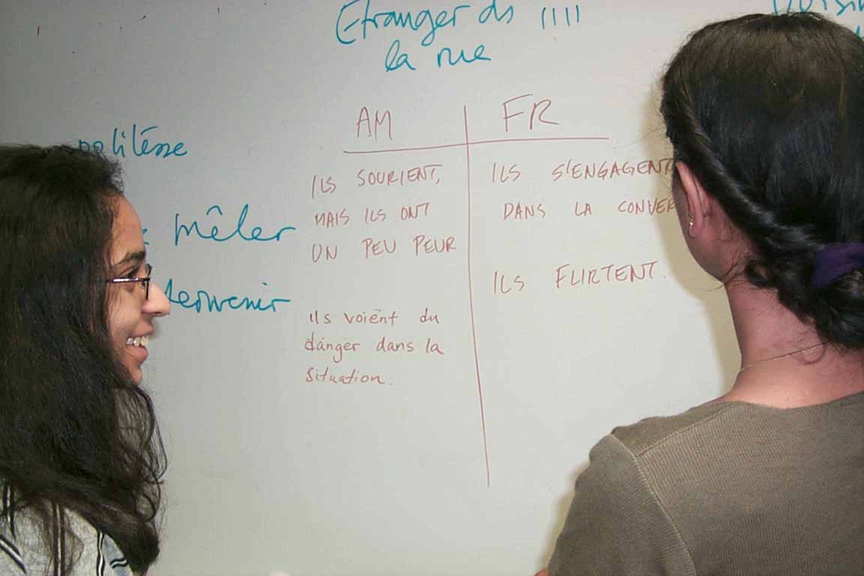 Etranger ds
la rue
politésse
mêler
AM
FR
ILS SOURIENT,
MAIS ILS ONT
UN PEU PEUR
ils voient du
danger dans la
situation.
ILS S'ENGAGENT
DANS LA
ILS FLIRTENT.